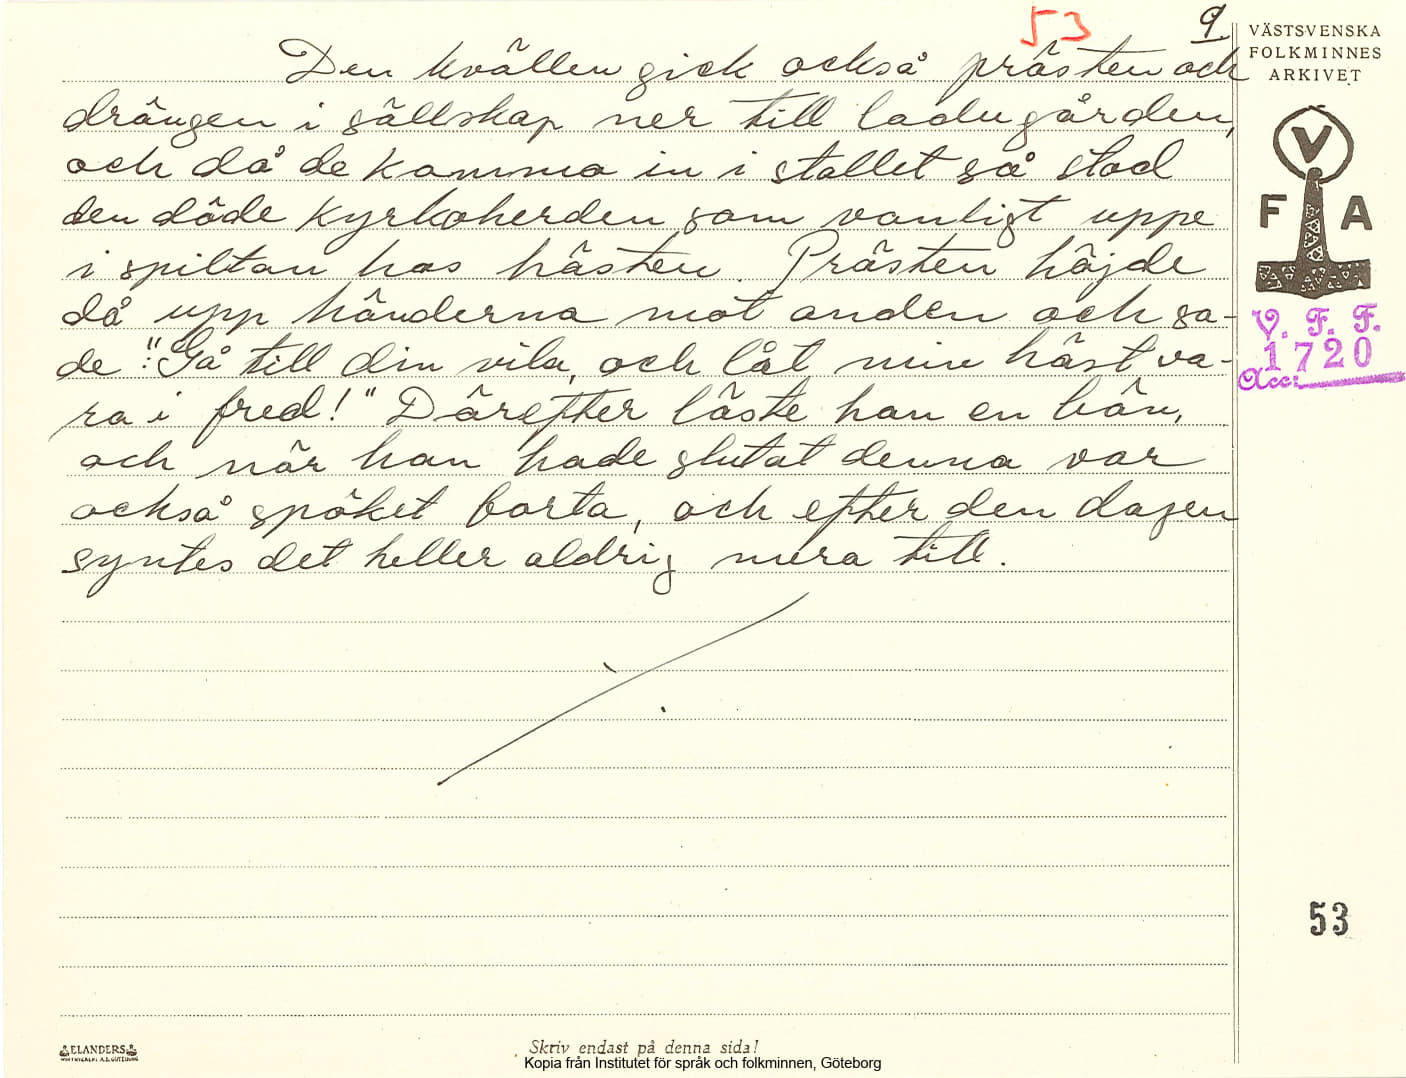 53
9
VÄSTSVENSKA
FOLKMINNES
ARKIVET
Den kvällen gick också prästen och
drängen i sällskap ner till ladugården,
och då de kommo in i stallet så stod
den döde kyrkoherden som vanligt uppe
i spiltan hos hästen. Prästen höjde
då upp händerna mot anden och sa-
de: "Gå till din vila, och låt min häst va-
ra i fred!" Därefter läste han en bön,
och när han hade slutat denna var
också spöket borta, och efter den dagen
syntes det heller aldrig mera till.
V
F A
V. F. F.
1720
Acc:
53
ELANDERS
Skriv endast på denna sida!
Kopia från Institutet för språk och folkminnen, Göteborg